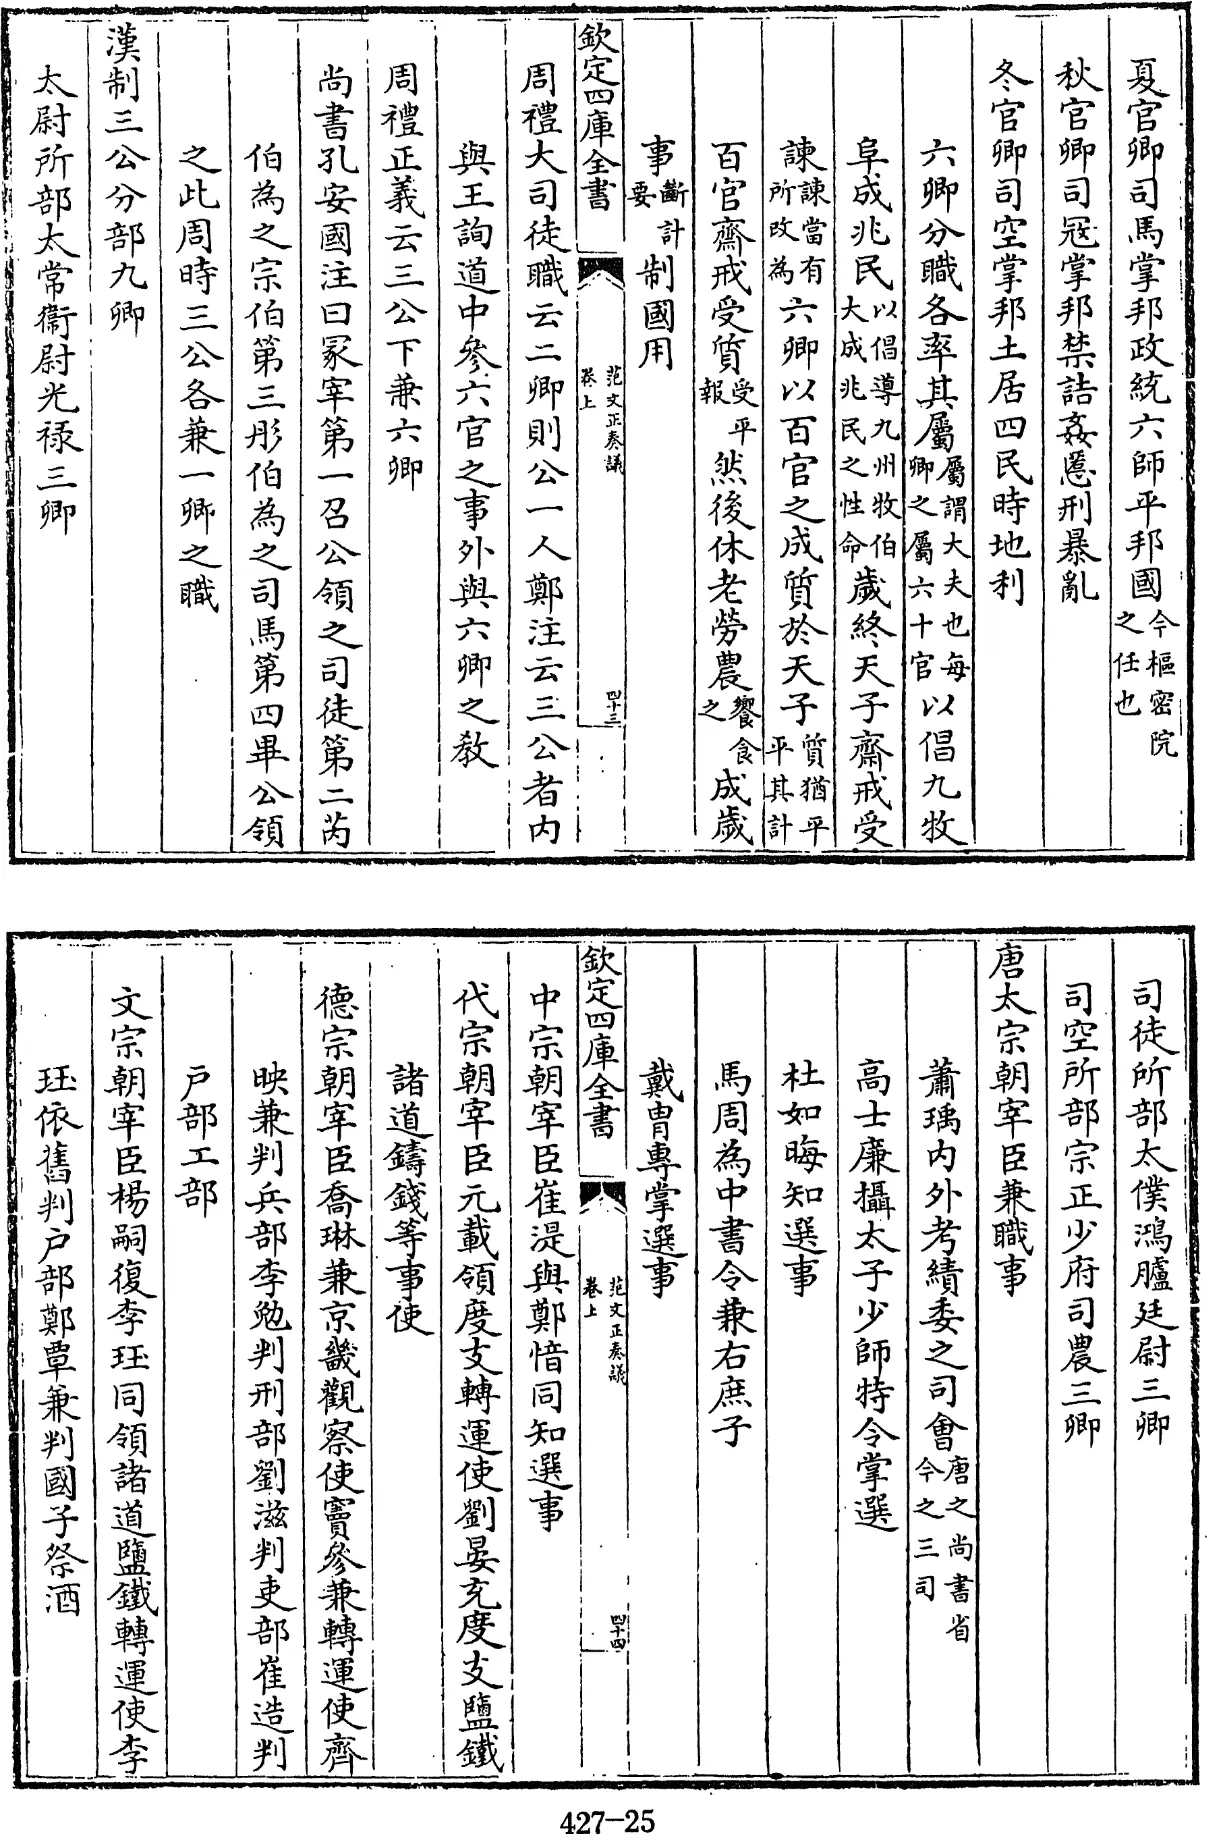 夏官卿司馬掌邦政統六師平邦國今樞密院之任也
秋官卿司寇掌邦禁詰姦慝刑暴亂
冬官卿司空掌邦土居四民時地利
六卿分職各率其屬屬謂大夫也每卿之屬六十官以倡九牧
阜成兆民以倡導九州牧伯大成兆民之性命歲終天子齋戒受
諫諫當有所改為六卿以百官之成質於天子質猶平平其計
百官齋戒受質受平報然後休老勞農饗食之成歲
事斷計要制國用
欽定四庫全書
范文正奏議
卷上
四十三
周禮大司徒職云二卿則公一人鄭注云三公者内
與王詢道中參六官之事外與六卿之教
周禮正義云三公下兼六卿
尚書孔安國注曰冢宰第一召公領之司徒第二芮
伯為之宗伯第三彤伯為之司馬第四畢公領
之此周時三公各兼一卿之職
漢制三公分部九卿
太尉所部太常衛尉光禄三卿
司徒所部太僕鴻臚廷尉三卿
司空所部宗正少府司農三卿
唐太宗朝宰臣兼職事
蕭瑀内外考績委之司會唐之尚書省今之三司
高士廉攝太子少師特令掌選
杜如晦知選事
馬周為中書令兼右庶子
戴胄專掌選事
欽定四庫全書
范文正奏議
卷上
四十四
中宗朝宰臣崔湜與鄭愔同知選事
代宗朝宰臣元載領度支轉運使劉晏充度支鹽鐵
諸道鑄錢等事使
德宗朝宰臣喬琳兼京畿觀察使竇參兼轉運使齊
映兼判兵部李勉判刑部劉滋判吏部崔造判
戶部工部
文宗朝宰臣楊嗣復李珏同領諸道鹽鐵轉運使李
珏依舊判戶部鄭覃兼判國子祭酒
427-25